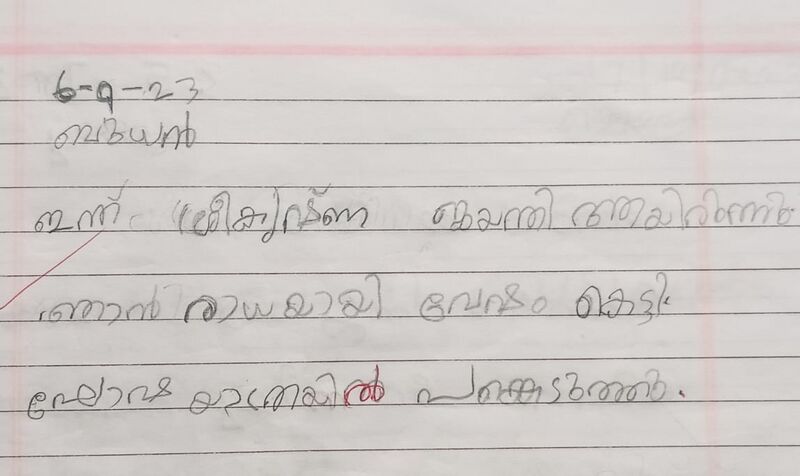 6-9-23
ബുധൻ
ഇന്ന് ശ്രീകൃഷ്ണ ജയന്തി ആയിരുന്നു
ഞാൻ രാധയായി വേഷം കെട്ടി
ഘോഷയാത്രയിൽ പങ്കെടുത്തു.